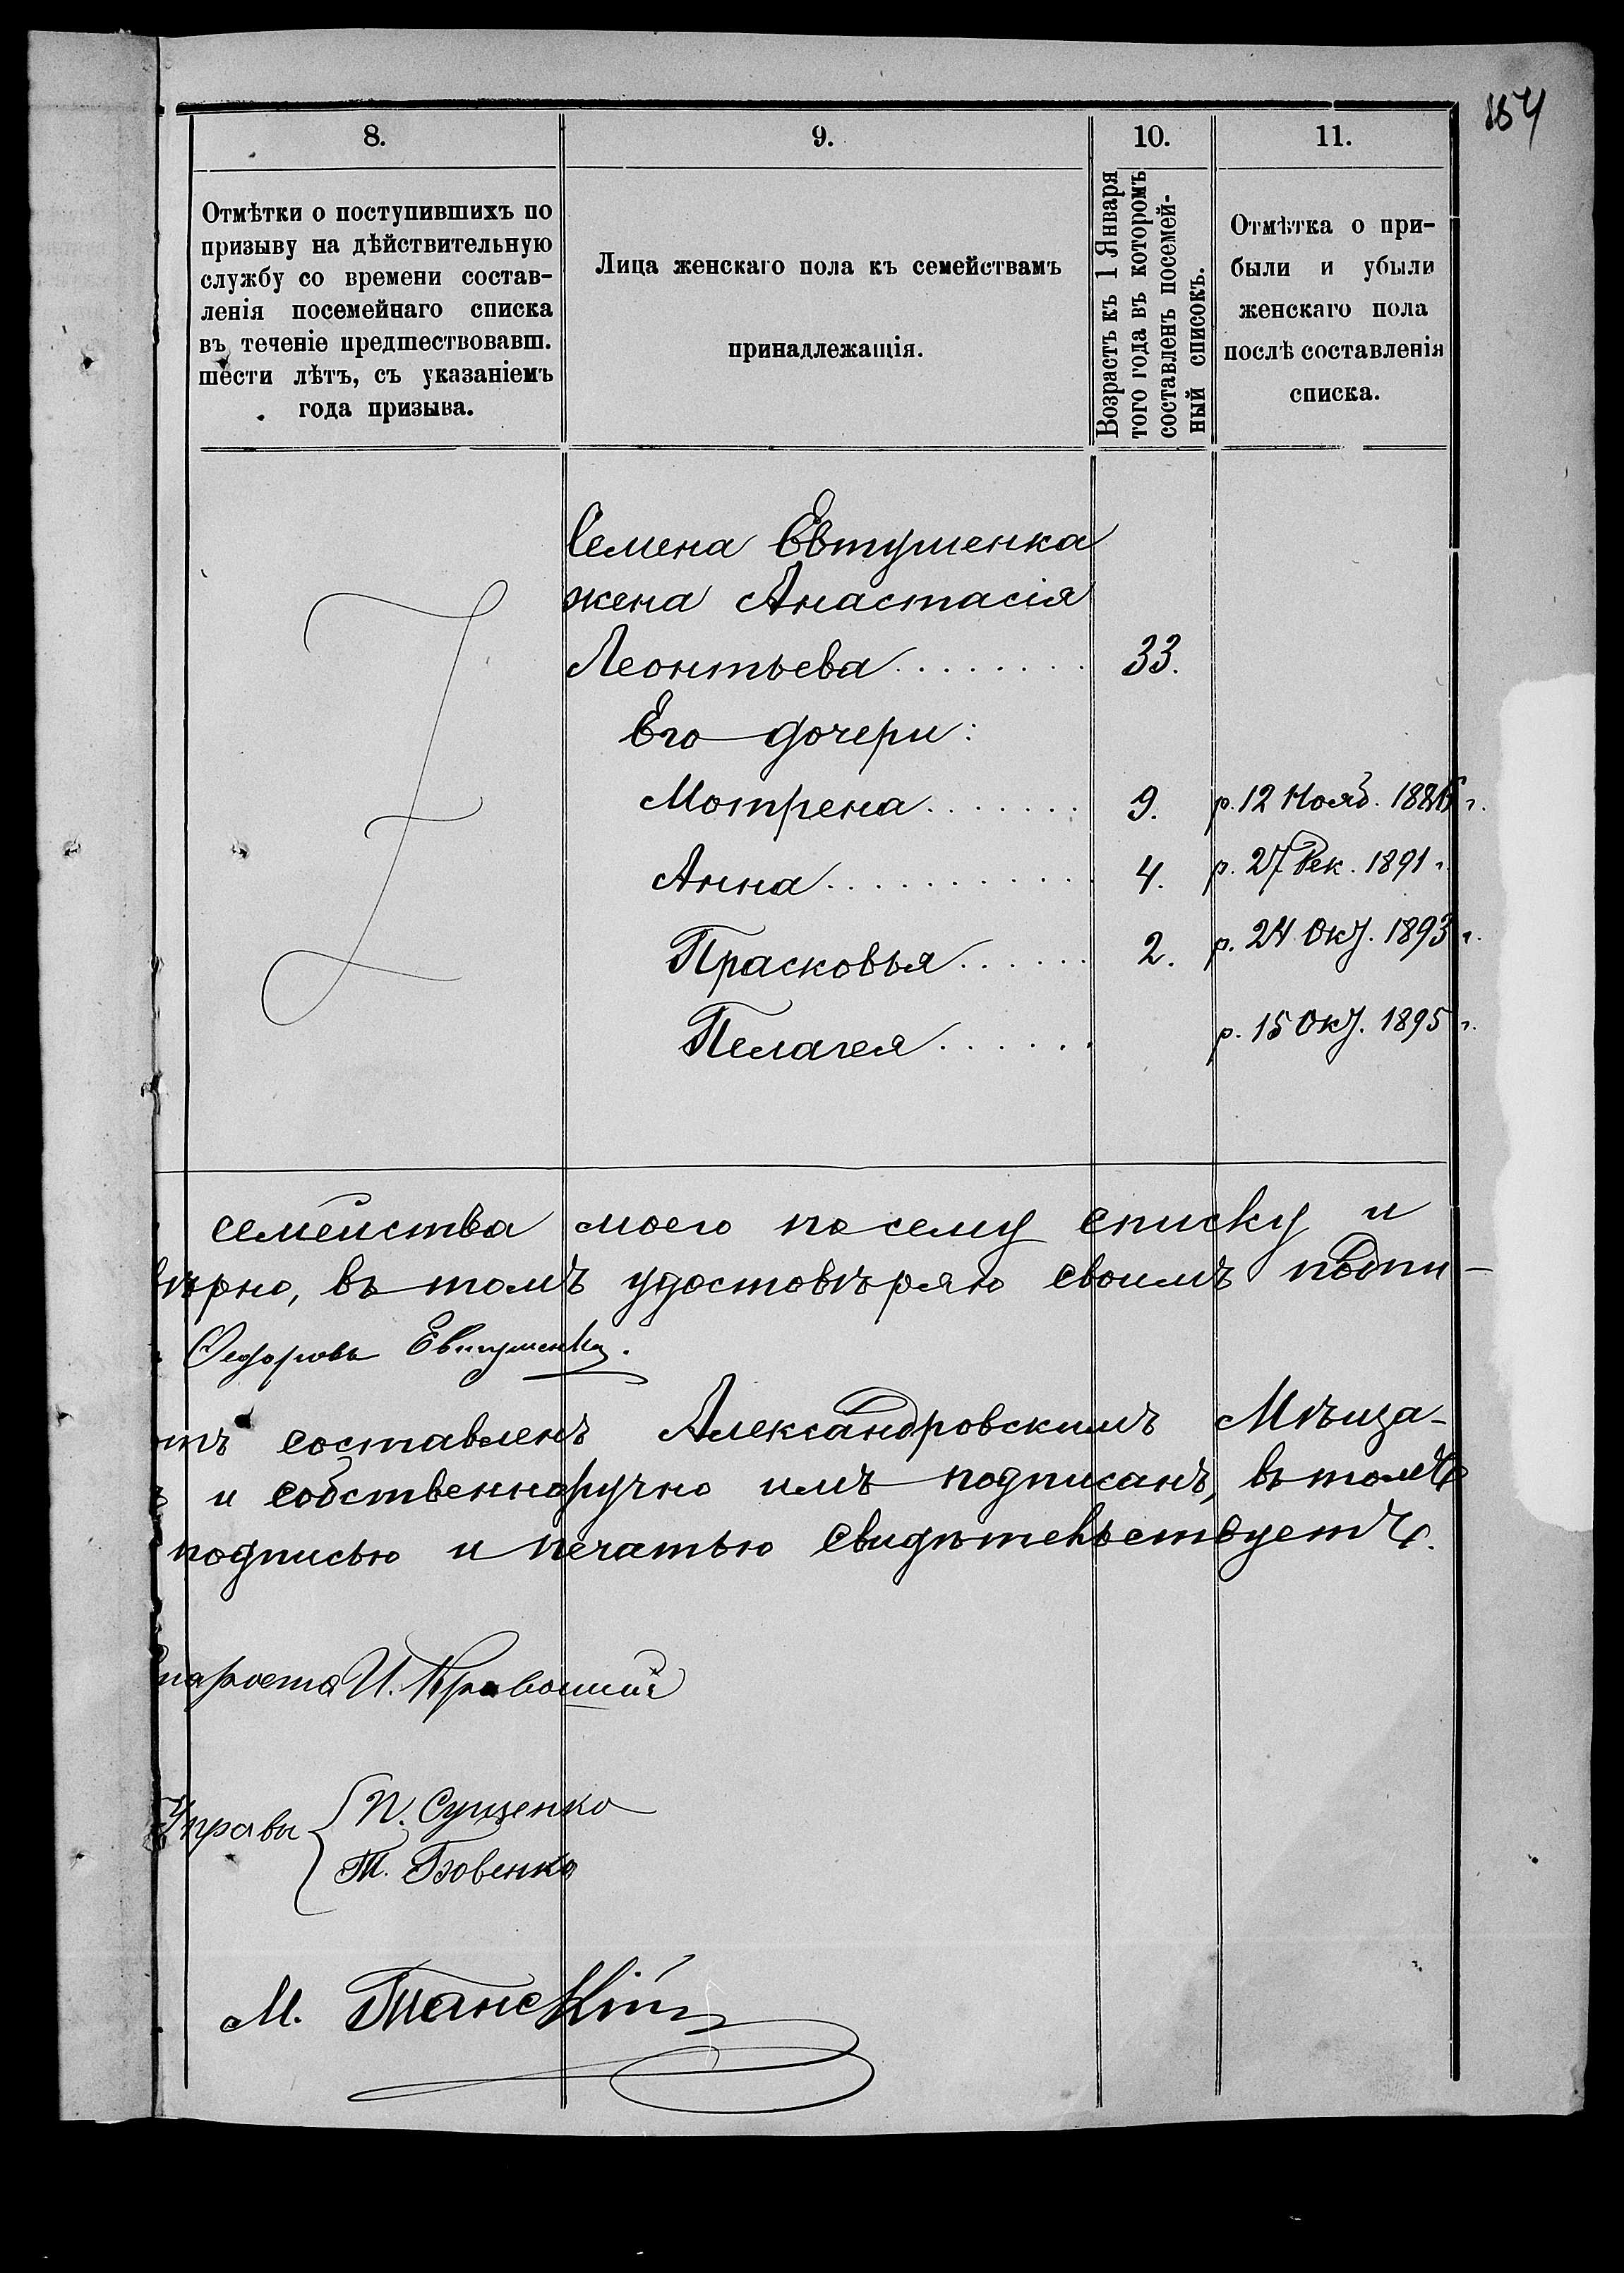 154
8.
9.
10.
11.
Отмѣтки о поступившихъ по
призыву на дѣйствительную
службу со времени состав-
ленія посемейнаго списка
въ теченіе предшествовавш.
шести лѣтъ, съ указаніемъ
года призыва.
Лица женскаго пола къ семействамъ
принадлежащія.
Возрастъ къ 1 Января
того года въ которомъ
составленъ посемей-
ный списокъ.
Отмѣтка о при-
были и убыли
женскаго пола
послѣ составленія
списка.
Семена Евтушенка
жена Анастасія
Леонтьева ........ 33.
Его дочери:
Мотрена ....... 9. р. 12 Нояб. г.
Анна ........... 4. р. 27 Дек. 1891 г.
Прасковья ...... 2. р. 24 Окт. 1893 г.
Пелагея ...... р. 15 Окт. 1895 г.
семейства моего по сему списку и
вѣрно, въ томъ удостовѣряю своимъ подпи-
Федоровъ Евтушенко.
отъ составленъ Александровскимъ Мѣща-
и собственноручно имъ подписанъ, въ томъ
подписью и печатью свидѣтельствуетъ.
Староста И.
Управы { П. Сущенко
Т.
М. Танскій